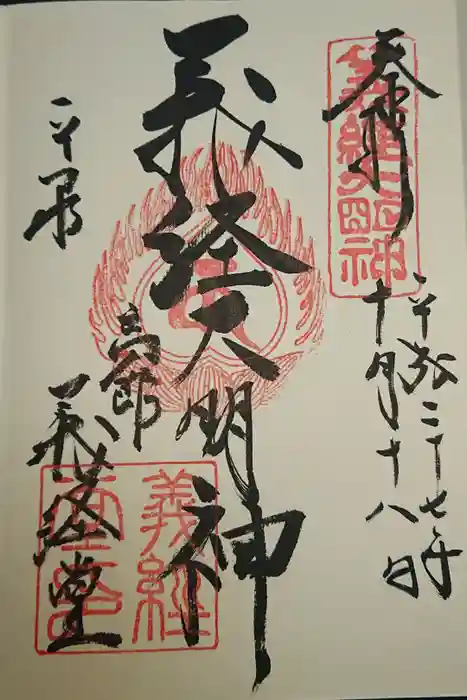 奉拝
義經大明神
平成二十七年
十月十八日
義経大明神
平泉
高館
義経堂
義經
堂印